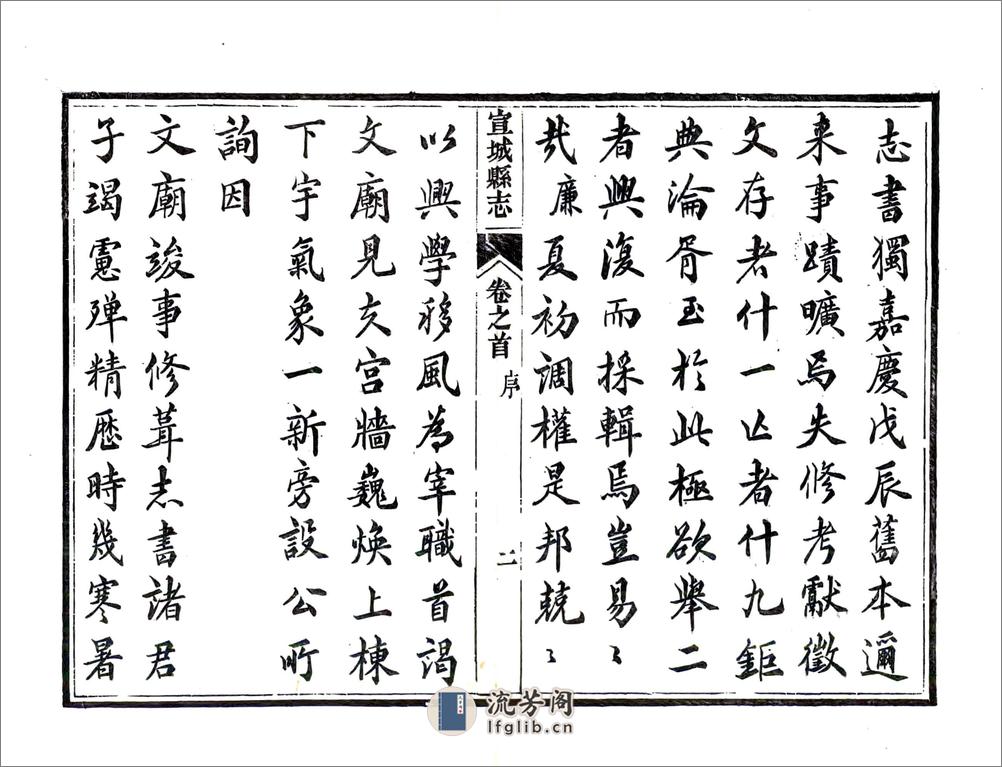 志書獨嘉慶戊辰舊本邇
来事蹟曠焉失修考獻徵
文存者什一亡者什九鉅
典淪胥至於此極欲舉二
者興復而採輯焉豈易〻
哉廉夏初調權是邦兢〻
宣城縣志 卷之首 序 二
以興學移風為宰職首謁
文廟見夫宮牆巍煥上棟
下宇氣象一新旁設公所
詢因
文廟竣事修葺志書諸君
子竭慮殫精歷時幾寒暑
流芳阁
lfglib.cn